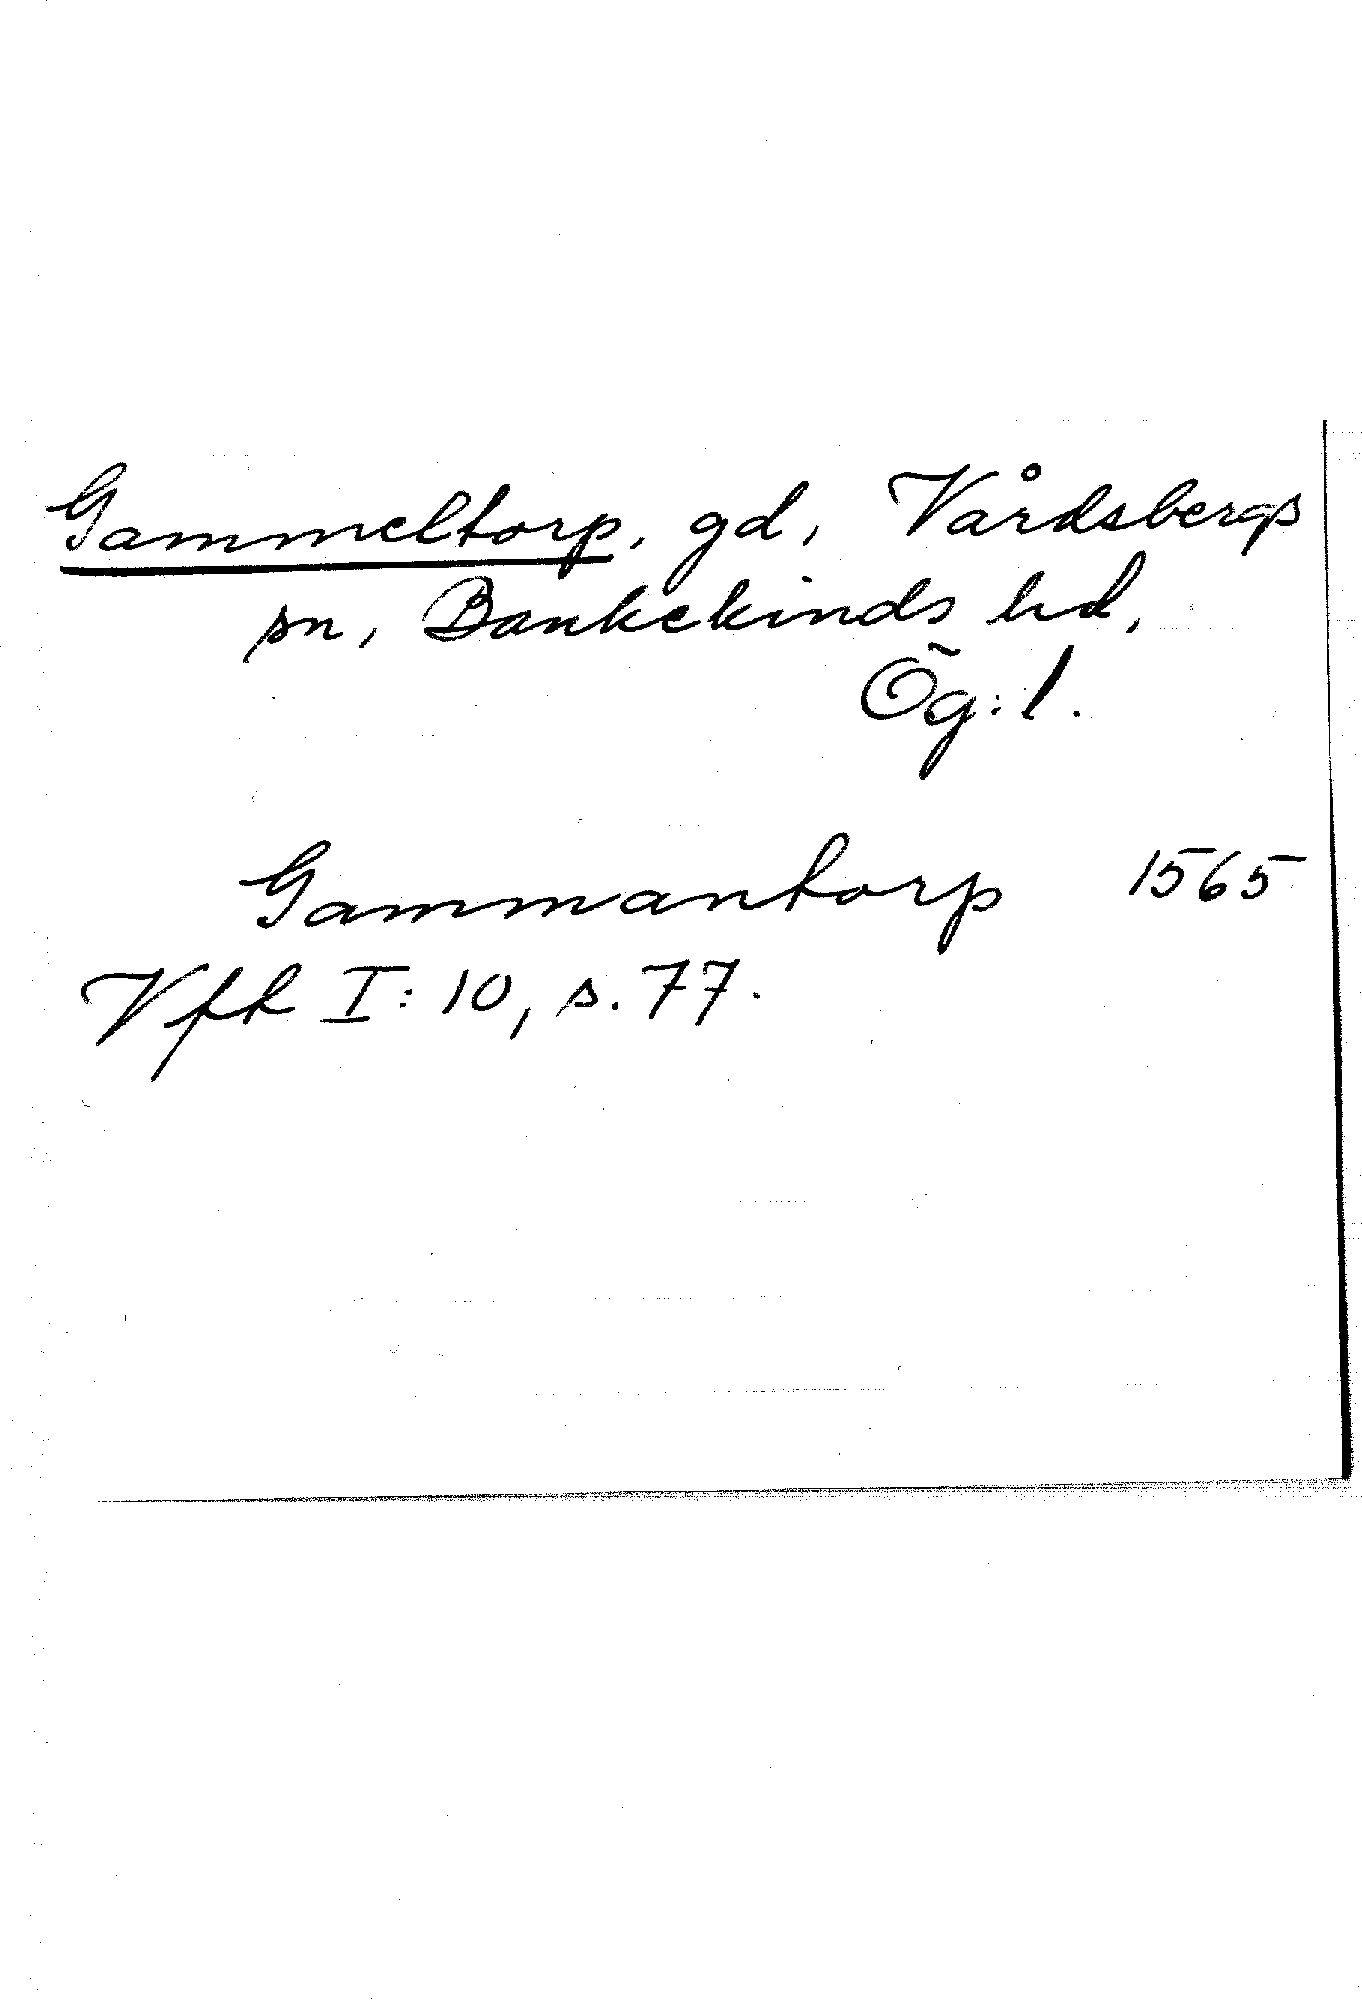 Gammeltorp, gd, Vårdsbergs
sn, Bankekinds hd,
Ög:l.
Gammantorp 1565
Vfk I:10, s.77.